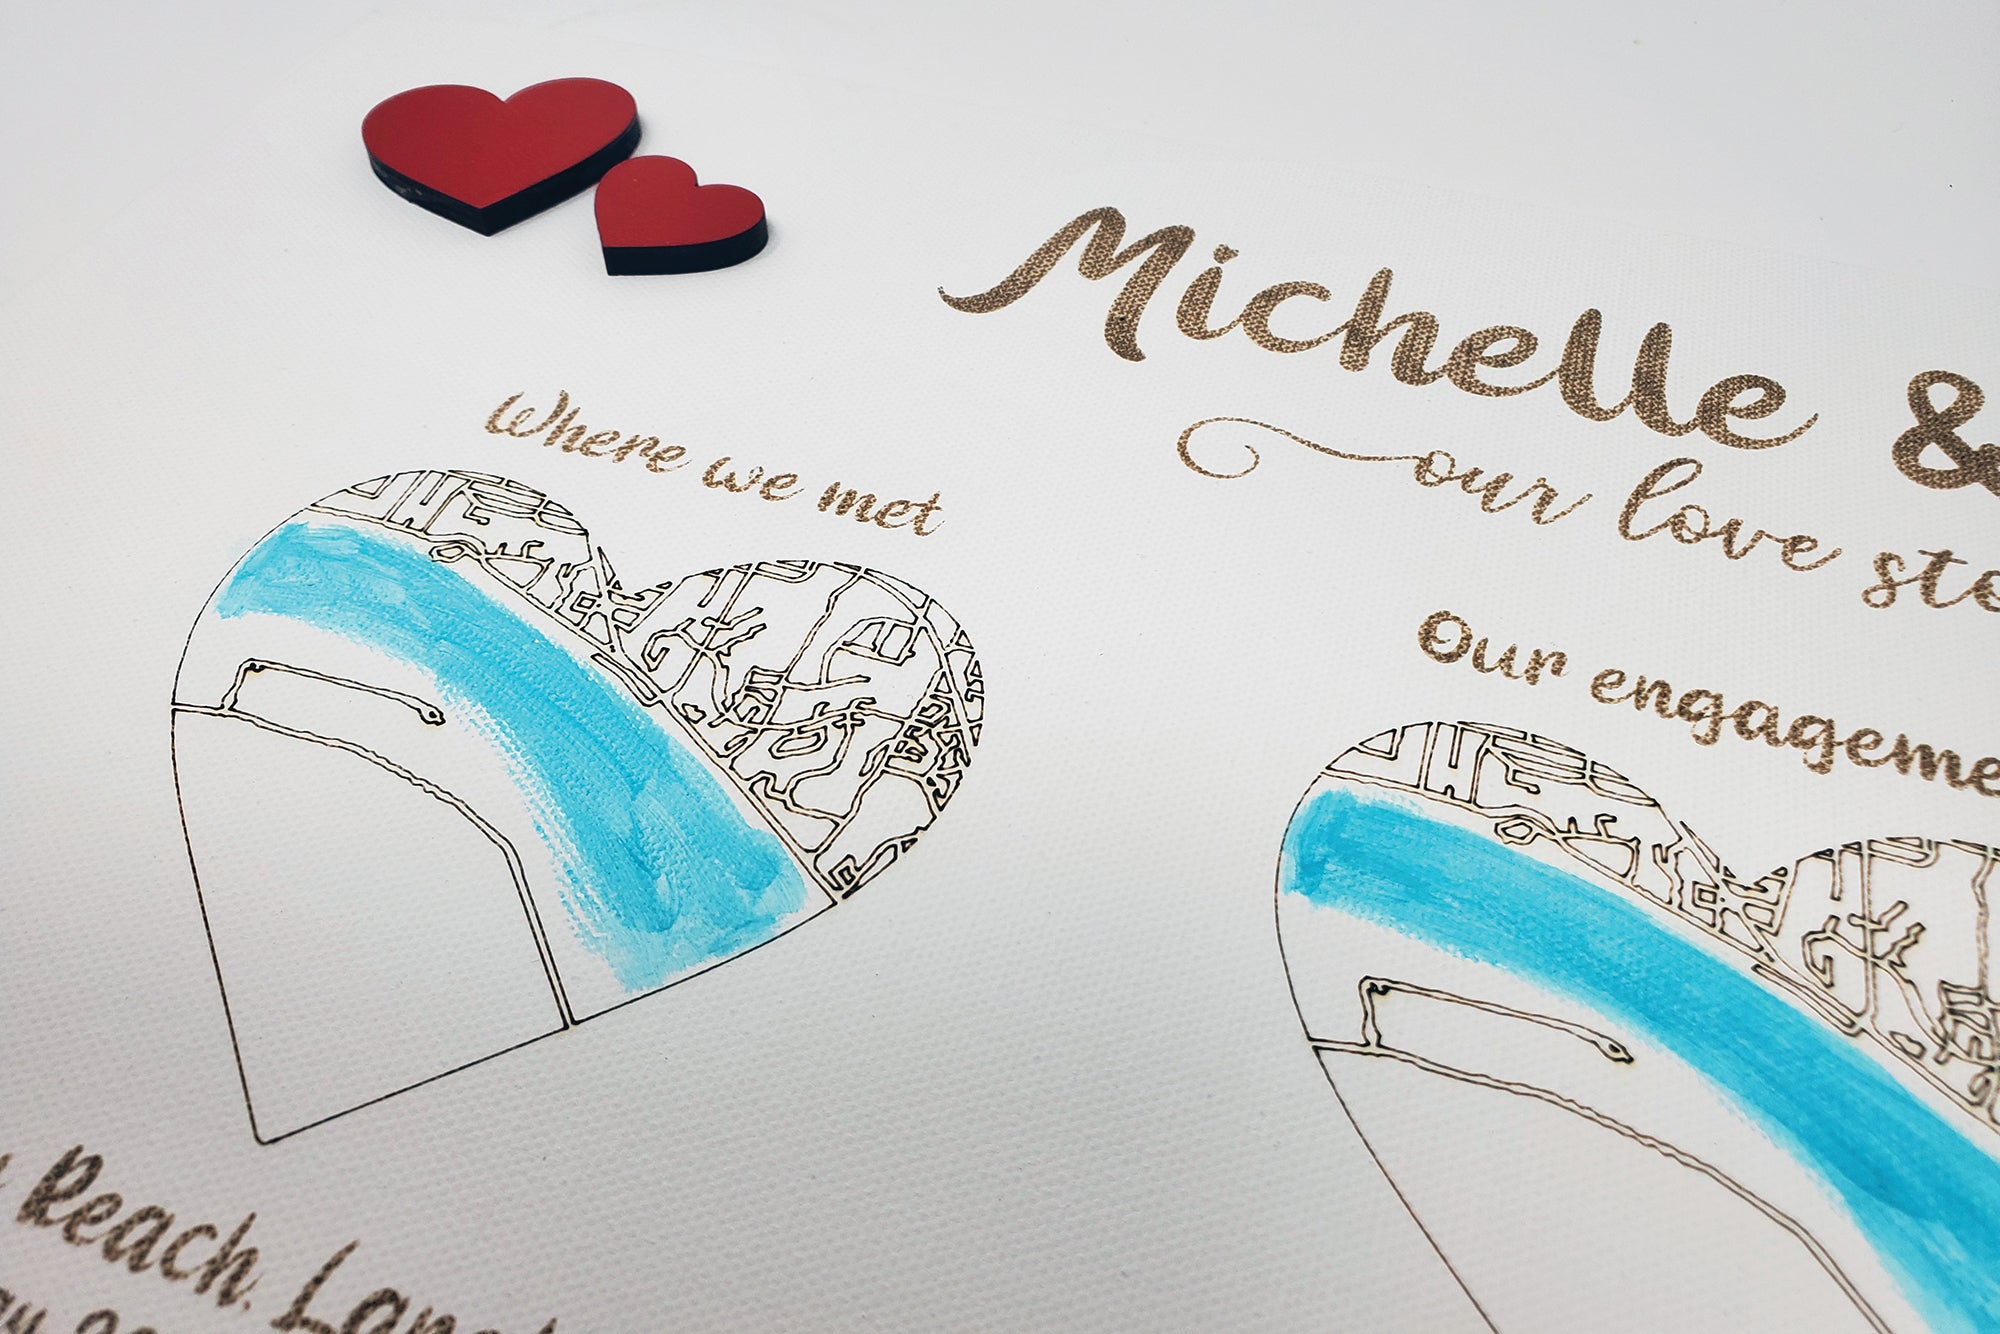 Michelle &
our love sto
Where we met
Our engageme
Reach, Lan